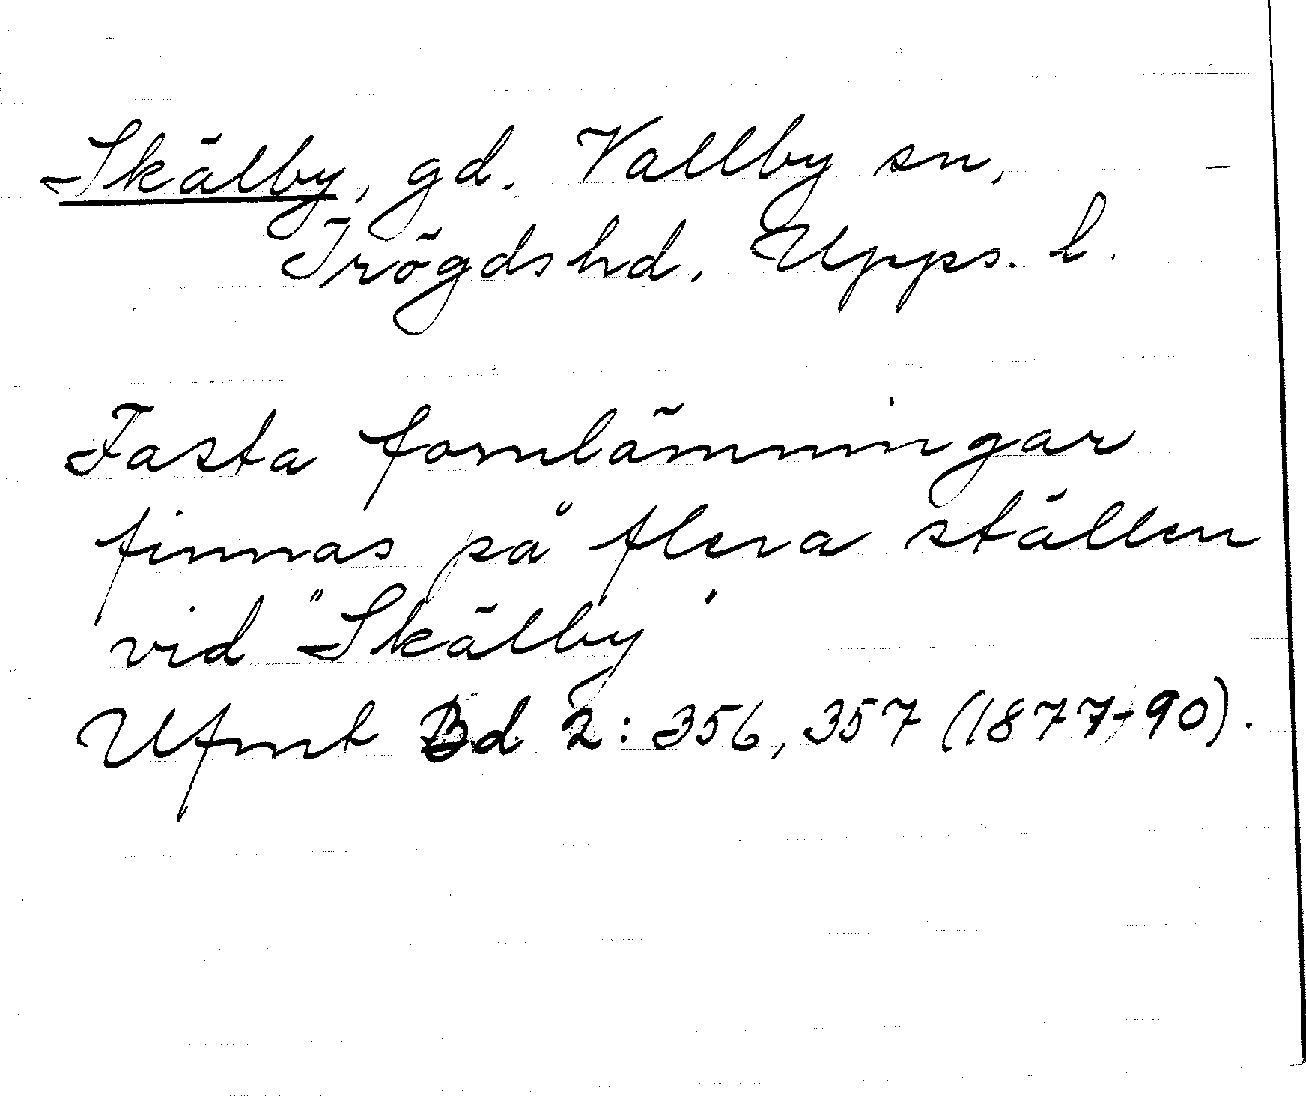 Skälby, gd. Vallby sn,
Trögds hd, Upps. l.
Fasta fornlämningar
finnas på flera ställen
vid "Skälby"
Ufmt Bd 2: 356, 357 (1877-90).